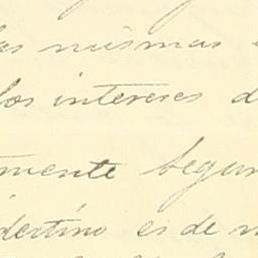 las mismas
los intereses d
mente segun
destino es de